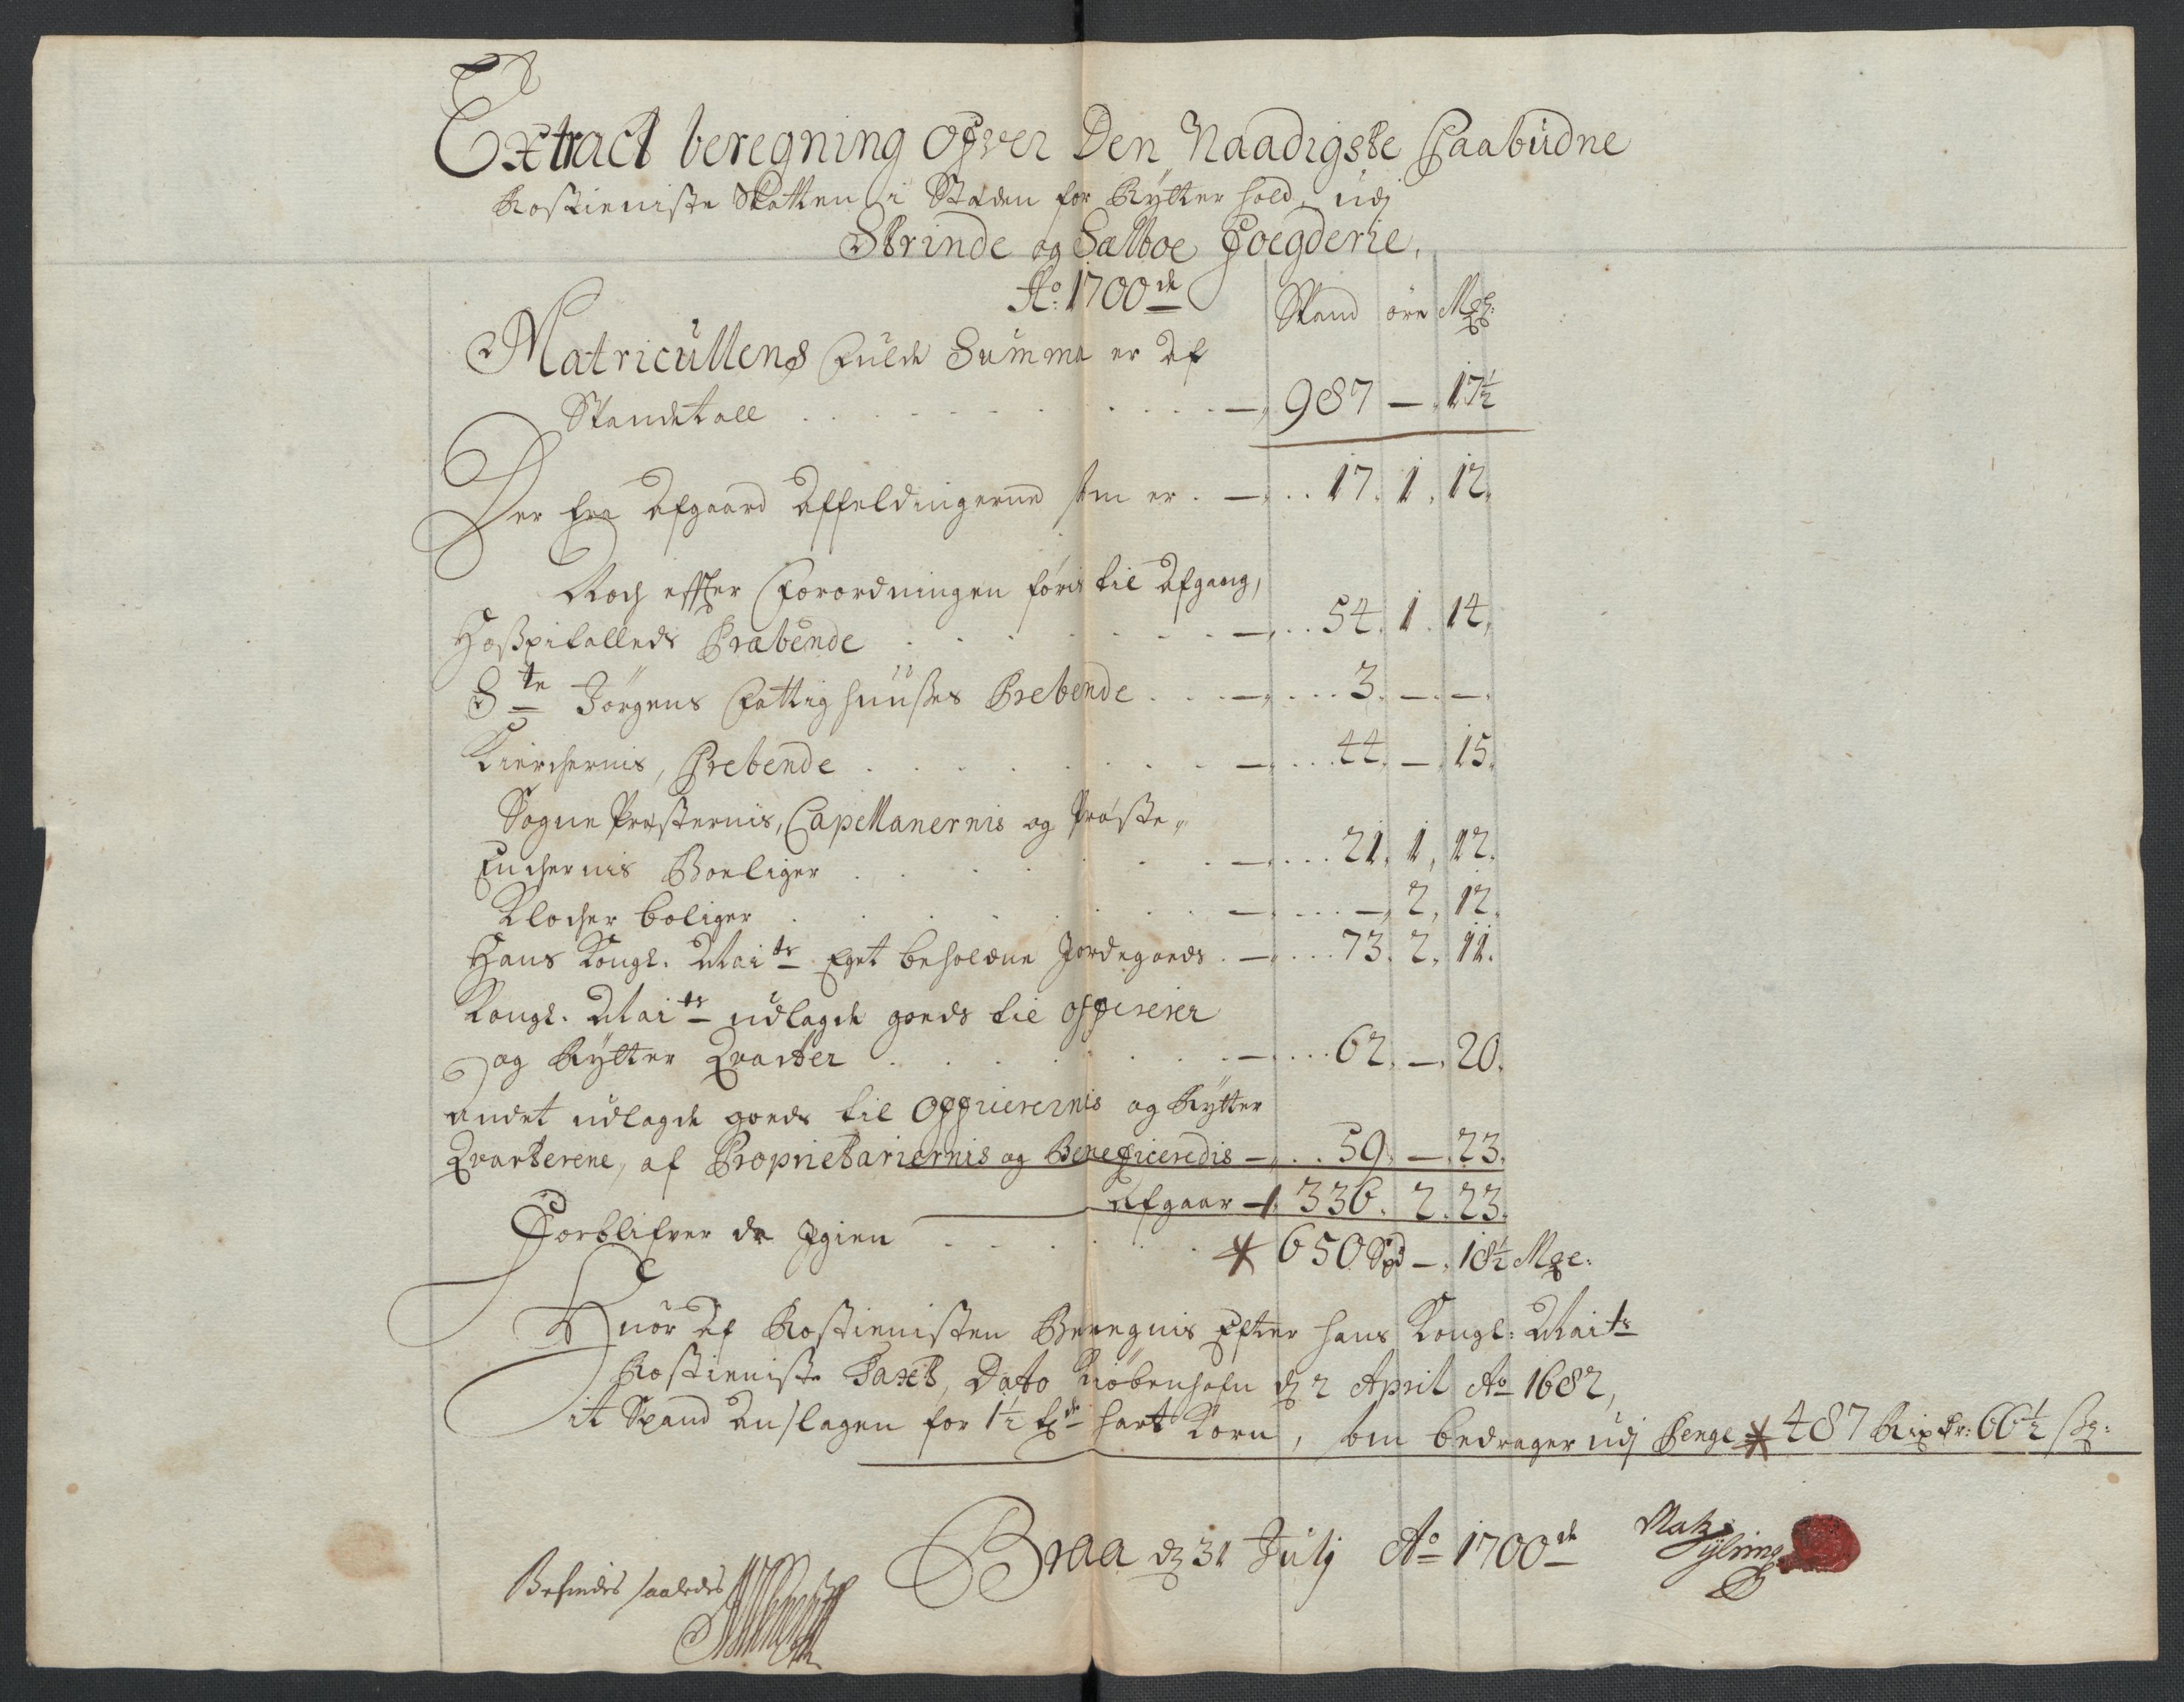 Extract beregning ofver Den Naadigste Paabudne
Rostieniste Skatten i Steden for Rytter hold, udj
Strinde og Sælboe Foegderie,
Ao: 1700de
Spand øre Mgl:
Matricullens fulde Summa er Af
Spandetall — 987 — 17½
Der fra Afgaard Affeldingerne som er — 17. 1. 12.
Noch effter Forordningen føris til Afgang,
Hoßpitalleds Præbende — 54. 1. 14.
Ste Jørgens Fattighuußes Prebende — 3. — —
Kierchernis, Prebende — 44. — 15.
Sogne Presternis, Capellanernis og Præste-
Enchernis Boeliger — 21. 1. 12.
Klocher boliger — — 2. 12.
Hans Kongl. Maits Eget beholdne Jordegoeds — 73. 2. 11.
Kongl. Maits udlagde goeds til officerer
og Rytter Qvarter — 62. — 20.
andet udlagde goeds til Officierernis og Rytter
Qvarterene, af Proprietariernis og Beneficeredis — 59. — 23.
afgaar — 336. 2. 23.
Forblifver da Igien 650 Spd — 18½ Mge:
Huor Af Rostienisten Beregnis Efter hans Kongl: Maits
Rostieniste Taxt, Dato Kiøbenhafn d 2 April Ao 1682,
it Spand Anslagen for 1½ tde hart Korn, som bedrager udj Penge 487 Rixdr: 66½ ß:
Braa d 31 Julj Ao 1700de
Befindes saaledes